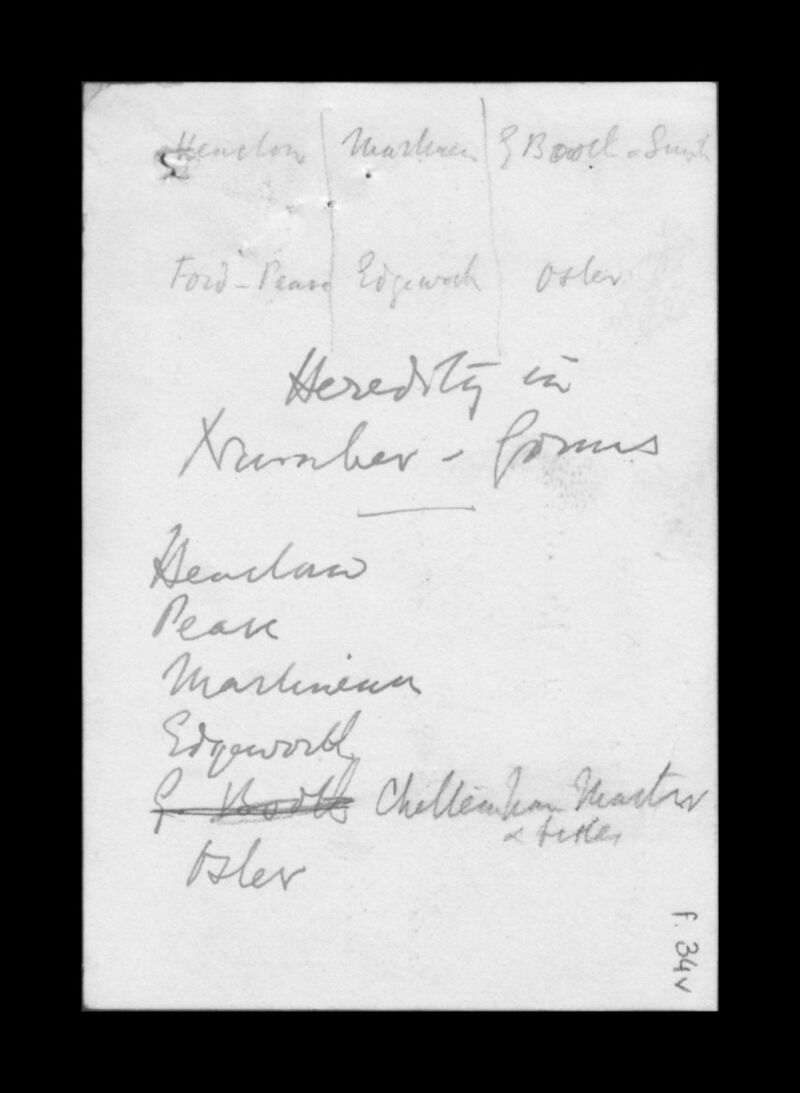 Henslow Martineau G Booth & Smith
Ford - Pease Edgeworth Osler
Heredity in
Number - Forms
Henslow
Pease
Martineau
Edgeworth
G Booth Cheltenham Master
& sister
Osler
f. 34v